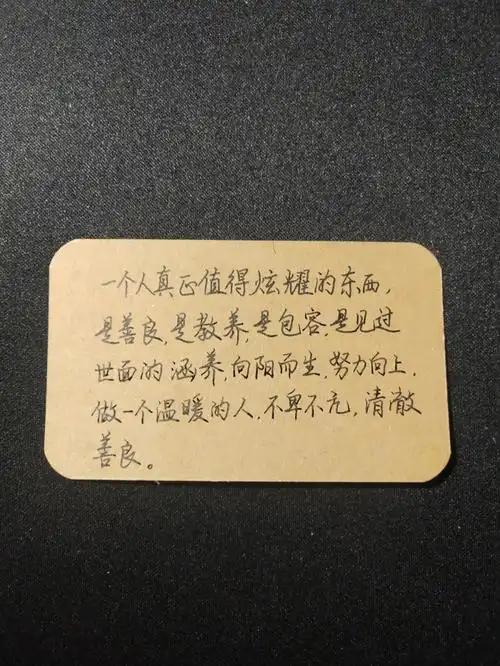 一个人真正值得炫耀的东西，
是善良，是教养，是包容，是见过
世面的涵养，向阳而生，努力向上，
做一个温暖的人，不卑不亢，清澈
善良。